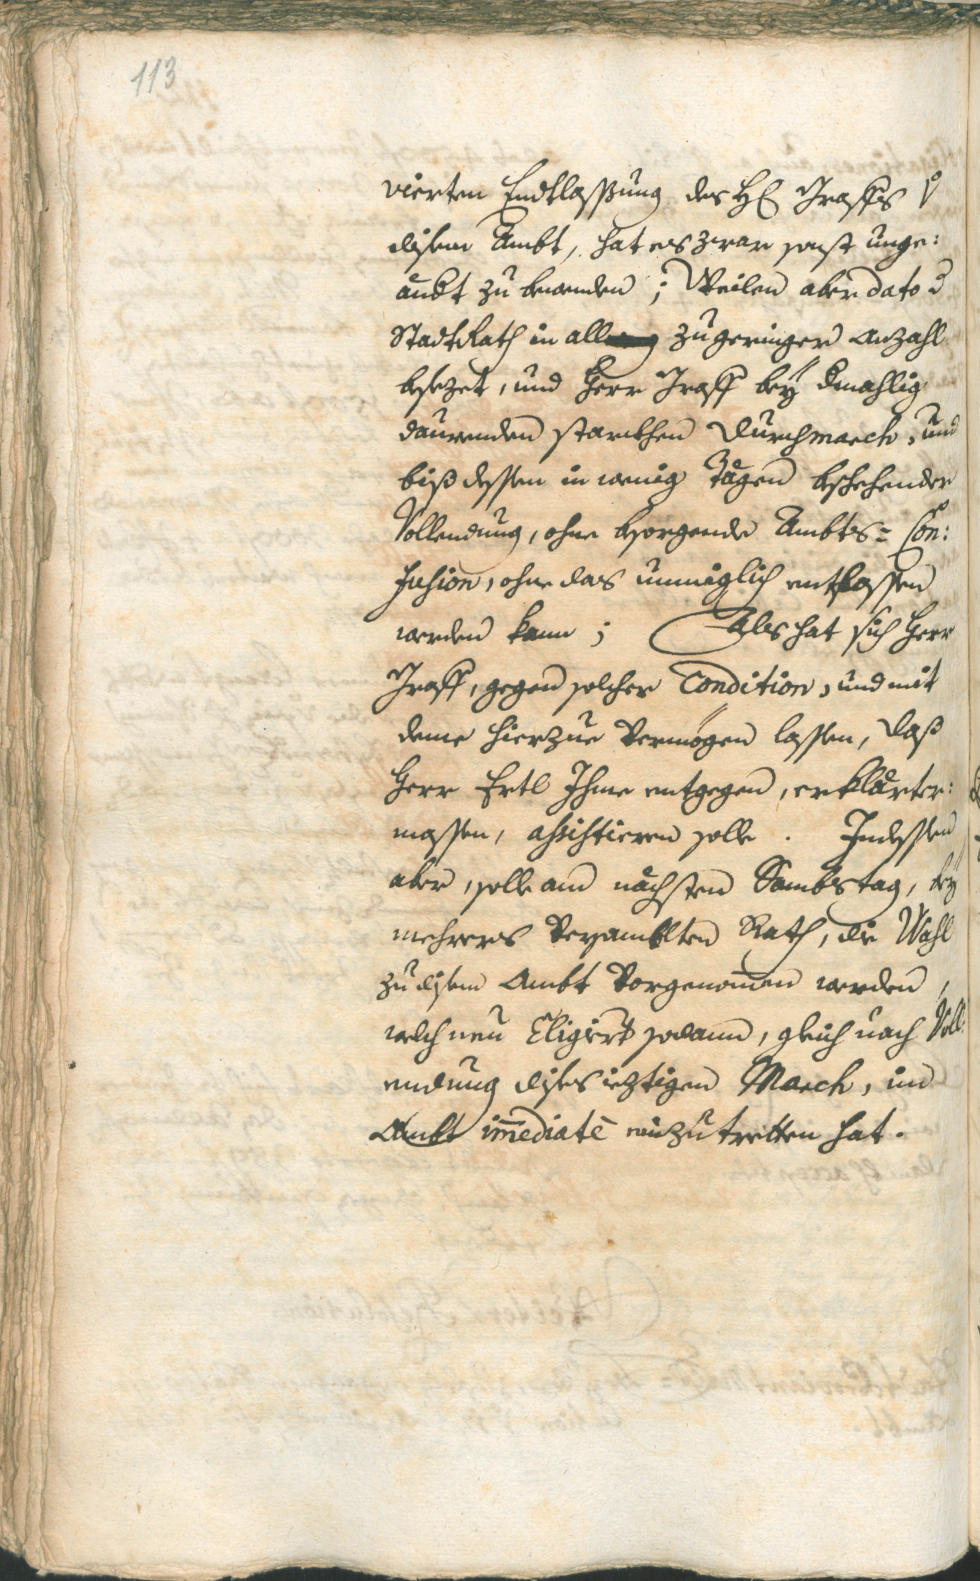 113
vierten Endtlassung des H: Graffs
disem Ambt, hat es zwar sonst unge:
ändt zu bewenden; Weilen aber dato
StadtRath in all zu geringer Anzahl
besezet, und Herr Graff bey dmahlig
daurenden starckhen Durchmarch, und
biß dessen in wenig Tägen beschehender
Vollendung, ohne besorgende Ambts= Con:
fusion, ohne das unmöglich entlassen
werden kann; Als hat sich Herr
Graff, gegen solcher Condition, und mit
deme hierzue Vermögen lassen, daß
Herr Ertl Ihme entgegen, erklärter:
massen, assistieren solle. Indessen
aber, solle am nächsten Sambstag, bey
mehrers Versambleten Rath, die Wahl
zu disem Ambt Vorgenomen werden,
welch neu Eligirt sodann, gleich nach Voll:
endung dises ieztigen March, im
Ambt imediatè einzutretten hat.